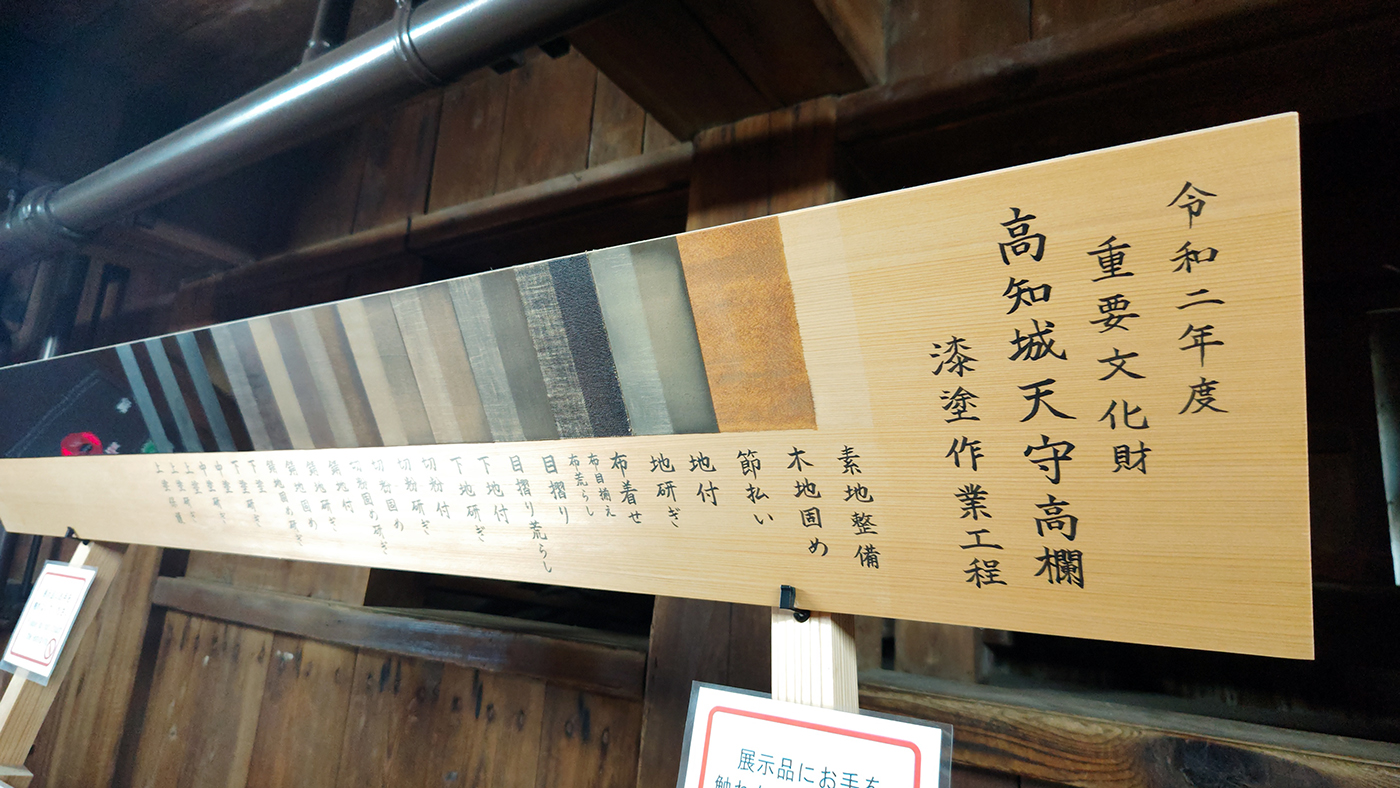 令和二年度
重要文化財
高知城天守高欄
漆塗作業工程
素地整備
木地固め
節払い
地付
地研ぎ
布着せ
布目摘え
布荒らし
目摺り
目摺り荒らし
下地付
下地研ぎ
切粉付
切粉研ぎ
切粉固め
切粉固め研ぎ
錆地付
錆地研ぎ
錆地固め
錆地固め研ぎ
下塗
下塗研ぎ
中塗
中塗研ぎ
上塗
上塗研ぎ
展示品にお手を